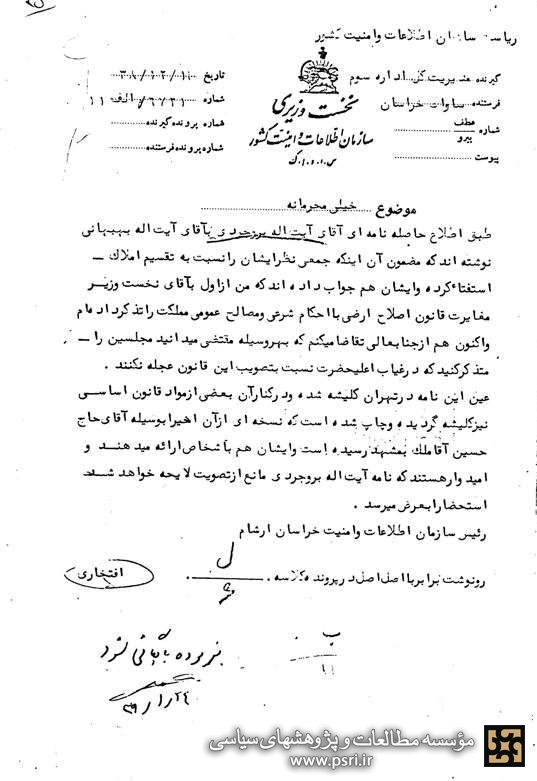 ریاست سازمان اطلاعات وامنیت کشور
گیرنده مدیریت کل اداره سوم
فرستنده ساواک خراسان
شماره عطف
پیرو
پیوست
نخست وزیری
سازمان اطلاعات و امنیت کشور
س.ا.و.ا.ک
تاریخ
شماره
شماره پرونده گیرنده
شماره پرونده فرستنده
موضوع خیلی محرمانه
طبق اطلاع حاصله نامه ای آقای آیت اله بروجردی بآقای آیت اله بهبهانی
نوشته اند که مضمون آن اینکه جمعی نظر ایشان را نسبت به تقسیم املاک ـ
استفتاء کرده وایشان هم جواب داده اند که من از اول بآقای نخست وزیر
مغایرت قانون اصلاح ارضی با احکام شرعی ومصالح عمومی مملکت را تذکر داده‌ام
واکنون هم از جنابعالی تقاضا میکنم که بهر وسیله مقتضی میدانید مجلسین را ـ
متذکر کنید که در غیاب اعلیحضرت نسبت بتصویب این قانون عجله نکنند .
عین این نامه در تهران کلیشه شده ودر کنار آن بعضی از مواد قانون اساسی
نیز کلیشه گردیده وچاپ شده است که نسخه ای از آن اخیرا بوسیله آقای حاج
حسین آقا ملک بمشهد رسیده است وایشان هم باشخاص ارائه میدهند و
امیدوار هستند که نامه آیت اله بروجردی مانع از تصویت لایحه خواهد شد
استحضارا بعرض میرسد .
رئیس سازمان اطلاعات وامنیت خراسان ارشام
رونوشت برابر با اصل اصل در پرونده کلاسه
افتخاری
مؤسسه مطالعات و پژوهشهای سیاسی
www.psri.ir